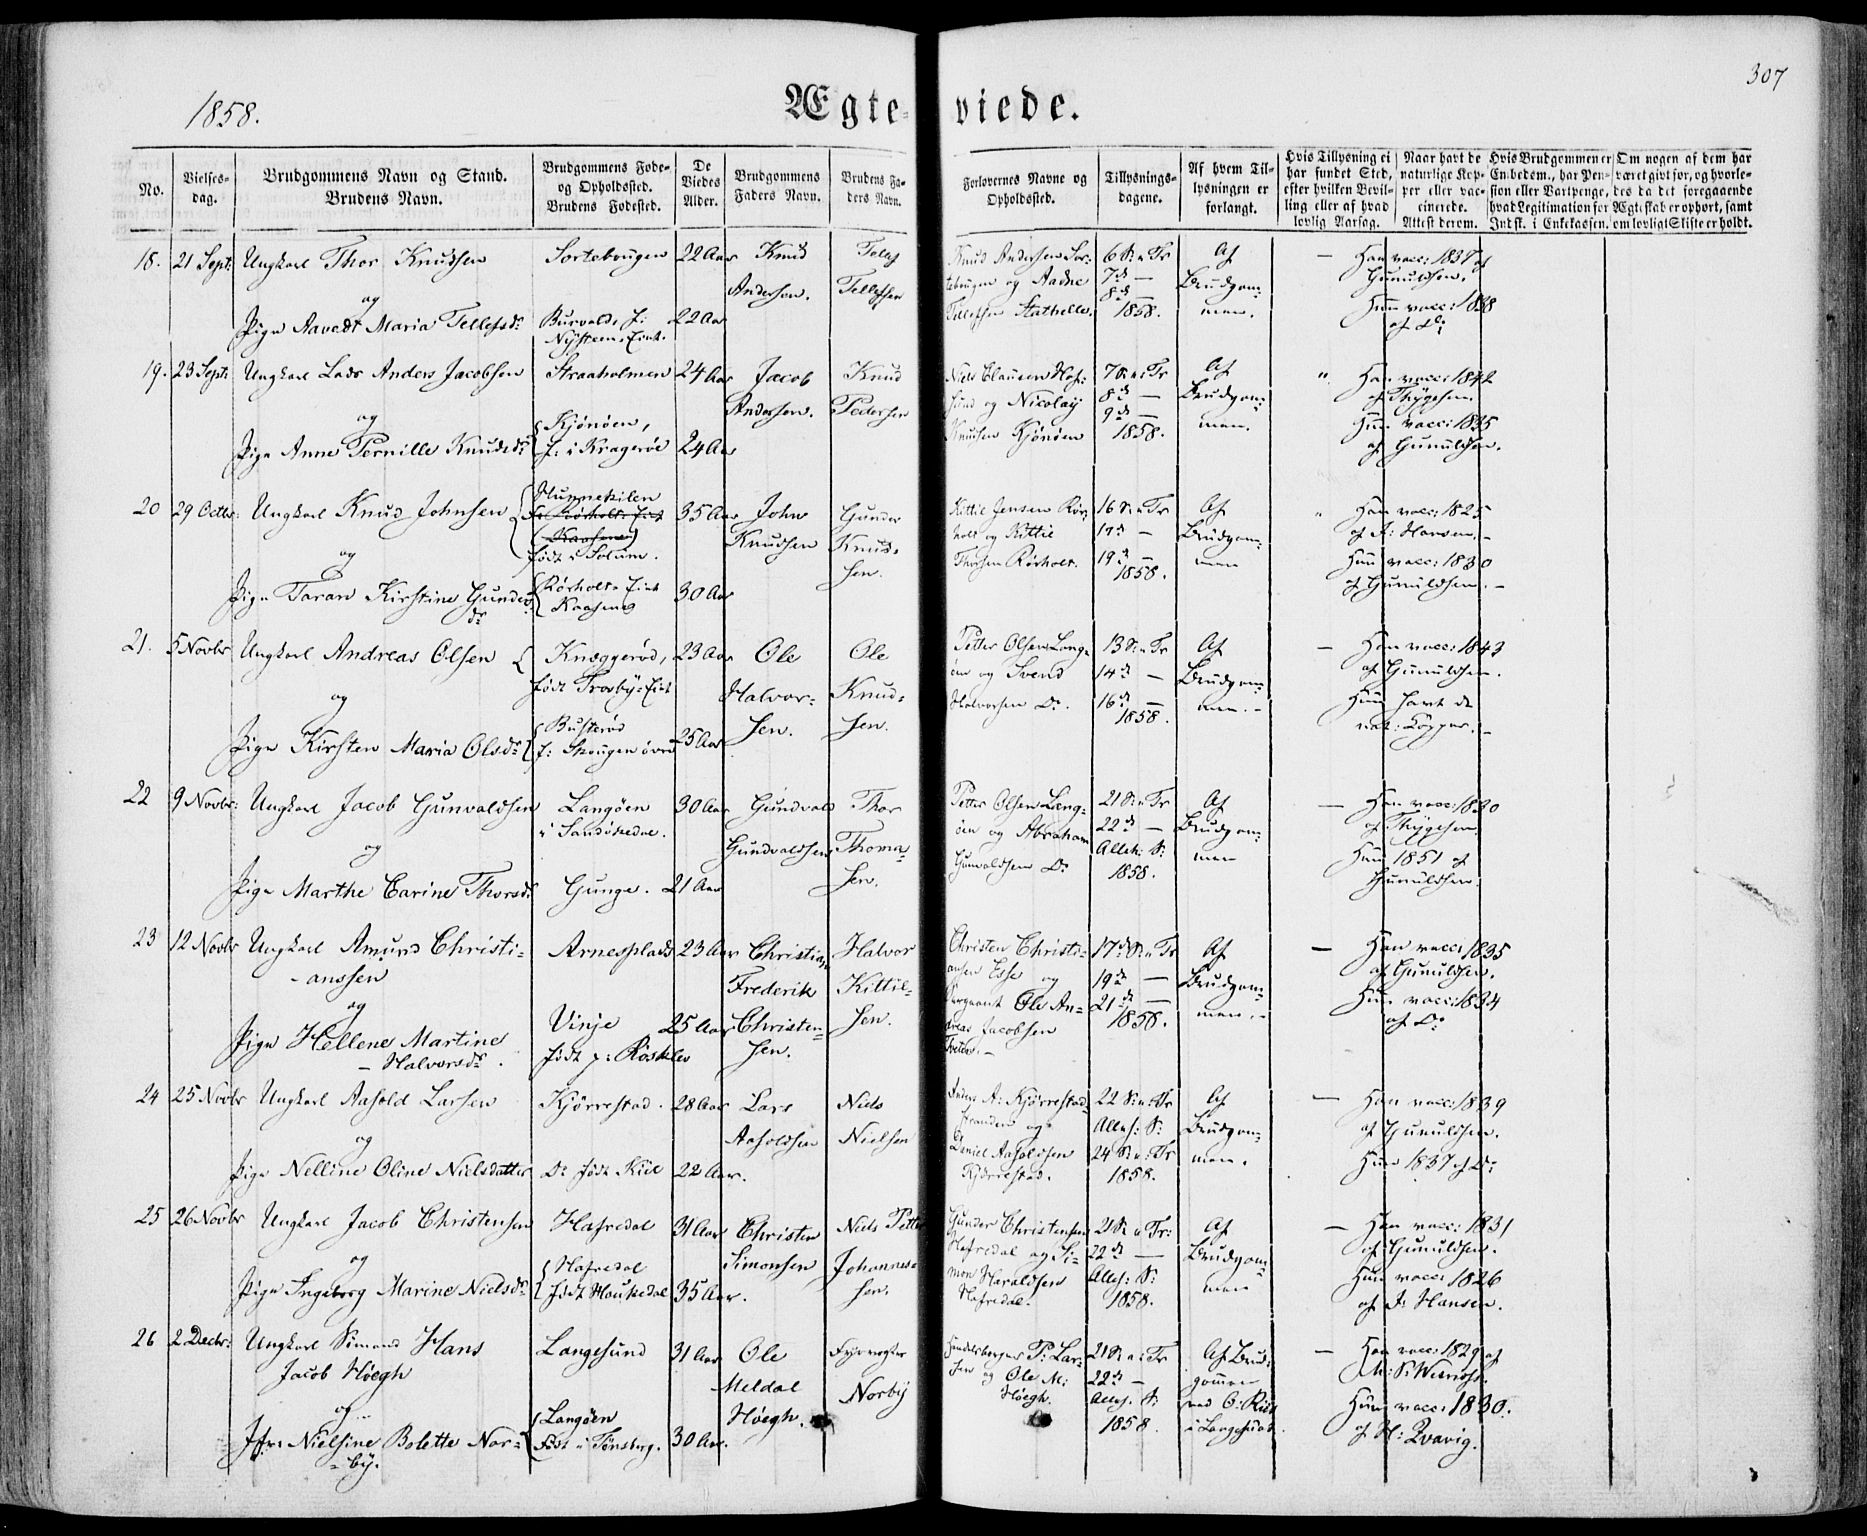 307
1858.
Ægte-viede.
No.
Vielses-dag.
Brudgommens Navn og Stand.
Brudens Navn.
Brudgommens Føde- og Opholdssted.
Brudens Fødested.
De Viedes Alder.
Brudgommens Faders Navn.
Brudens Faders Navn.
Forlovernes Navne og Opholdssted.
Tillysnings-dagene.
Af hvem Tillysningen er forlangt.
Hvis Tillysning ei har fundet Sted, efter hvilken Bevilling eller af hvad lovlig Aarsag.
Naar havt de naturlige Kopper eller vaccinerede. Attest derom.
Hvis Brudgommen er Enkedsm., har Pension eller Vartpenge, hvad Legitimation for Indsk. i Enkekassen.
Om nogen af dem har været givt før, og hvorledes da det foregaaende Ægteskab er ophørt, samt om lovligt Skifte er holdt.
18. 21 Sept: Ungkarl Thor Knudsen Sortebougen 22 Aar Knud Andersen. Tellef Tellefsen
og
Pige Aavedt Maria Tellefsd: 22 Aar
Knud Andersen Sortebougen og Aadne Tellefsen Stathelle.
6 S. e. Tr
7d —
8d —
1858.
Af Brudgommen.
— Han vacc: 1837 af Gunuldsen.
Hun vacc: 1838 af Do
19. 23 Sept: Ungkarl Lars Anders Jacobsen Straaholmen 24 Aar Jacob Andersen. Knud Pedersen
og
Pige Anne Pernille Knudsd: Kjønøen, f: i Kragerøe 24 Aar
Niels Clausen og Nicolay Knudsen Kjønøen
7 S. e. Tr
8d —
9d —
1858.
Af Brudgommen.
" Han vacc: 1842 af Thygesen
Hun vacc: 1835 af Gunuldsen.
20 29 Octbr: Ungkarl Knud Johnsen Hunnekilen
født i Solum. 35 Aar John Knudsen Gunder Knudsen.
og
Pige Taran Kirstine Gundersdr Rørholt Eiet Kaasene 30 Aar
Kittil Jensen Rørholt og Kittil Thorsen Rørholt.
16 S. e. Tr
17d —
19d —
1858.
Af Brudgommen
" Han vacc: 1825 af J: Hansen. —
Hun vacc: 1830 af Gunuldsen. —
21. 5 Novbr Ungkarl Andreas Olsen Knaggerød, født Trosby Eiet 23 Aar Ole Halvorsen. Ole Knudsen.
og
Pige Kirsten Maria Olsdr Busterød f: Skougen øvre 25 Aar
Petter Olsen Langøen og Svend Halvorsen Do.
13 S. e. Tr
14d —
16d —
1858.
Af Brudgommen. —
— Han vacc: 1843 af Gunuldsen.
Hun havt de nat: Kopper. —
22 9 Novbr: Ungkarl Jacob Gunvaldsen Langøen i Sandøkedal. 30 Aar Gundvald Gundvaldsen Thor Thomasen.
og
Pige Marthe Carine Thorsd: Gunge. 21 Aar
Petter Olsen Langøen og Abraham Gunvaldsen Do
21 S. e. Tr
22d —
Alleh: S:
1858.
Af Brudgommen
— Han vacc: 1830 af Thygesen
Hun 1851 af Gunuldsen.
23 12 Novbr Ungkarl Amund Christianssen Arnesplads 23 Aar Christian Frederik Christensen. Halvor Kittilsen.
og
Pige Hellene Martine Halvorsdr. Vinje født p: Røsklev 25 Aar
Christen Christiansen Esse og Sergeant Ole Andreas Jacobsen Tveten. —
17d S. e. Tr
19d —
21d —
1858.
Af Brudgommen. —
— Han vacc: 1835 af Gunuldsen.
Hun vacc: 1834 af Do
24 25 Novbr Ungkarl Aasold Larsen Kjørrestad. 28 Aar Lars Aasoldsen Niels Nielsen
og
Pige Nelline Oline Nielsdatter Do født Kiil 22 Aar.
Anders A: Kjørrestad Stranden og Daniel Aasoldsen Kjørrestad.
22 S. e. Tr
Alleh: S:
24 S. e. Tr
1858.
Af Brudgommen.
— Han vacc: 1839 af Gunuldsen.
Hun 1837 af Do
25 26 Novbr Ungkarl Jacob Christensen Hafredal 31 Aar Christen Simonsen Niels Petter Johannesen.
og
Pige Ingeborg Marine Nielsdr Hafredal født Houkedal 35 Aar.
Gunder Christensen Hafredal og Simon Haraldsen Hafredal.
21 S. e. Tr:
22d —
Alleh: S:
1858.
Af Brudgommen
— Han vacc: 1831 af Gunuldsen.
Hun vacc: 1826 af J: Hansen.
26 2 Decbr: Ungkarl Simond Hans Jacob Høegh Langesund 31 Aar Ole Meldal Høegh. Fyrvogter Norby
og
Jfr: Nielsine Bolette Norby. Langøen Født i Tønsberg. 30 Aar.
Handelsborger P: Larsen og Ole M: Høegh.
21 S. e. Tr
22d —
Alleh. S:
1858.
Af Brudgommen ved O: Riis i Langesund.
— Han vacc: 1829 af
Hun vacc: 1830. af H: Qvavig.